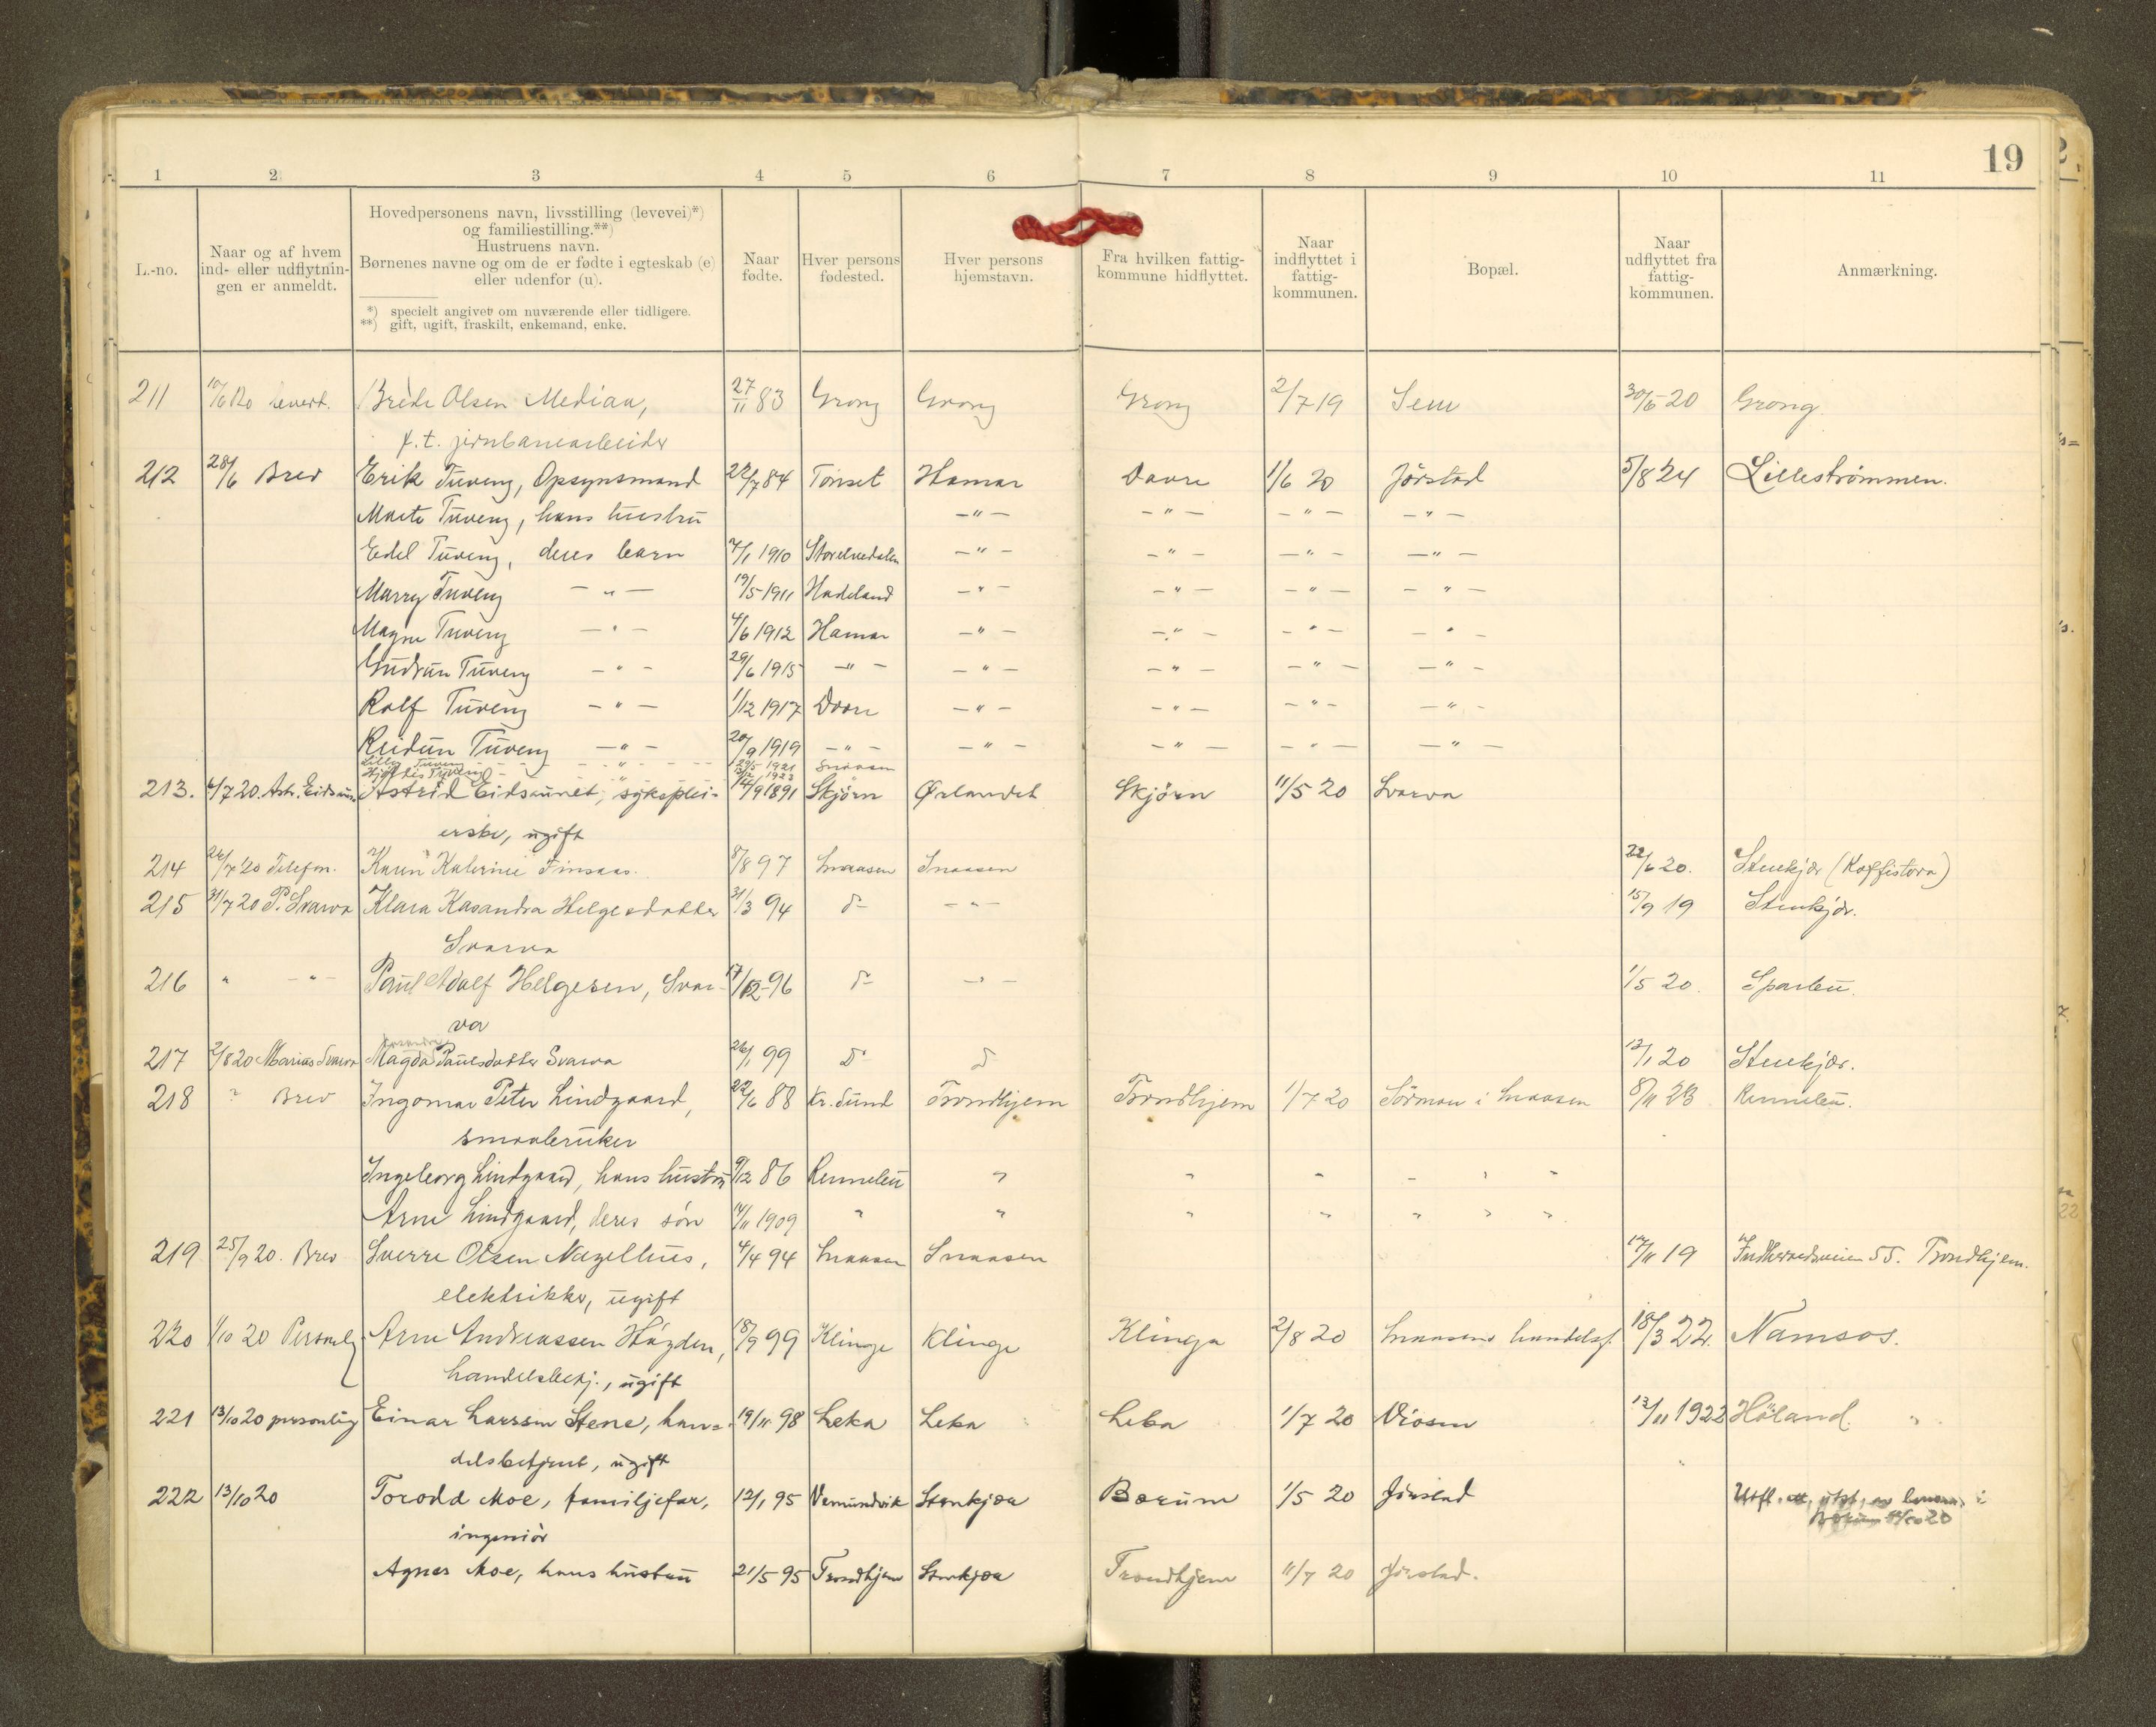 19
1 2 3 4 5 6 7 8 9 10 11
L.-no.
Naar og af hvem
ind- eller udflytnin-
gen er anmeldt.
Hovedpersonens navn, livsstilling (levevei)*)
og familiestilling.**)
Hustruens navn.
Børnenes navne og om de er fødte i egteskab (e)
eller udenfor (u).
*) specielt angivet om nuværende eller tidligere.
**) gift, ugift, fraskilt, enkemand, enke.
Naar
fødte.
Hver persons
fødested.
Hver persons
hjemstavn.
Fra hvilken fattig-
kommune hidflyttet.
Naar
indflyttet i
fattig-
kommunen.
Bopæl.
Naar
udflyttet fra
fattig-
kommunen.
Anmærkning.
211 10/6 20 Brede Olsen Median, 27/11 83 Grong Grong Grong 2/7 19 Sem 30/6 20 Grong
f.t. jernbanearbeider
212 28/6 Brev Erik Tuveng, Opsynsmand 22/7 84 Tönset Hamar Dovre 1/6 20 Jörstad 5/8 24 Lillestrømmen.
Marte Tuveng, hans hustru -"- -"- -"- -"-
Edel Tuveng, deres barn 7/1 1910 Storelvedalen -"- -"- -"- -"-
Marry Tuveng -"- 19/5 1911 Hadeland -"- -"- -"- -"-
Magne Tuveng -"- 4/6 1912 Hamar -"- -"- -"- -"-
Gudrun Tuveng -"- 29/6 1915 -"- -"- -"- -"- -"-
Rolf Tuveng -"- 1/12 1917 Dovre -"- -"- -"- -"-
Reidun Tuveng -"- 20/9 1919 -"- -"- -"- -"- -"-
Lilly Tuveng -"- 1921 Snaasen
Tuveng -"- 1923
213. 6/7 20. Astr. Eidsaune Astrid Eidsaunet, sykeplei- 14/9 1891 Skjörn Ørlandet Skjörn 11/5 20 Svarva
erske, ugift
214 24/7 20 Telefon. Karen Katerine Finsaas. 8/8 97 Snaasen Snaasen 22/6 20. Stenkjær (Kaffistova)
215 31/7 20 P. Svarva Klara Kasandra Helgesdatter 31/3 94 do -"- 15/9 19 Stenkjær.
Svarva
216 " -"- Paul Adolf Helgesen, Svar- 17/12 96 do -"- 1/5 20. Sparbu.
va
217 2/8 20 Marius Svarva Magda Paulsdatter Svarva 26/1 99 do do 12/1 20 Stenkjær.
218 " Brev Ingomar Peter Lindgaard, 22/6 88 Kr.Sund Trondhjem Trondhjem 1/7 20 Sörmon i Snaasen 8/11 23 Rennebu.
smaabruker
Ingeborg Lindgaard, hans hustru 9/12 86 Rennebu " " " " " "
Arne Lindgaard, deres sön 14/11 1909 " " " " " " "
219 25/9 20. Brev Sverre Olsen Nagelhus, 4/4 94 Snaasen Snaasen 12/11 19 Indherredsveien 55. Trondhjem.
elektriker, ugift
220 1/10 20 Personlig Arne Andreassen Høgden, 18/9 99 Klinge Klinge Klinga 2/8 20 Snaasens handelsf. 18/3 22. Namsos.
handelsbetj., ugift
221 13/10 20 personlig Einar Larssen Stene, han= 19/11 98 Leka Leka Leka 1/7 20 Viosen 12/11 1922 Höland. "
delsbetjent, ugift
222 13/10 20 Torodd Moe, familjefar, 12/1 95 Vemundvik Stenkjær Bærum 1/5 20 Jörstad Utfl.
ingeniör
Agnes Moe, hans hustru 21/5 95 Trondhjem Stenkjær Trondhjem 11/7 20 Jörstad.